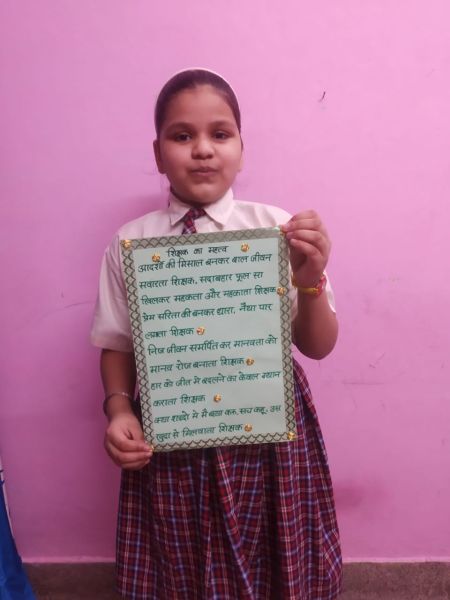 शिक्षक का महत्व
आदर्शो की मिसाल बनकर बाल जीवन
सवारता शिक्षक, सदाबहार फूल सा
खिलकर महकता और महकाता शिक्षक
प्रेम सरिता की बनकर धारा, नैया पार
लगाता शिक्षक
निज जीवन समर्पित कर मानवता को
मानव रोज बनाता शिक्षक
हार को जीत मे बदलने का केवल ध्यान
कराता शिक्षक
क्या शब्दो मे मै बया करू, सच कहू, उस
खुदा से मिलवाता शिक्षक